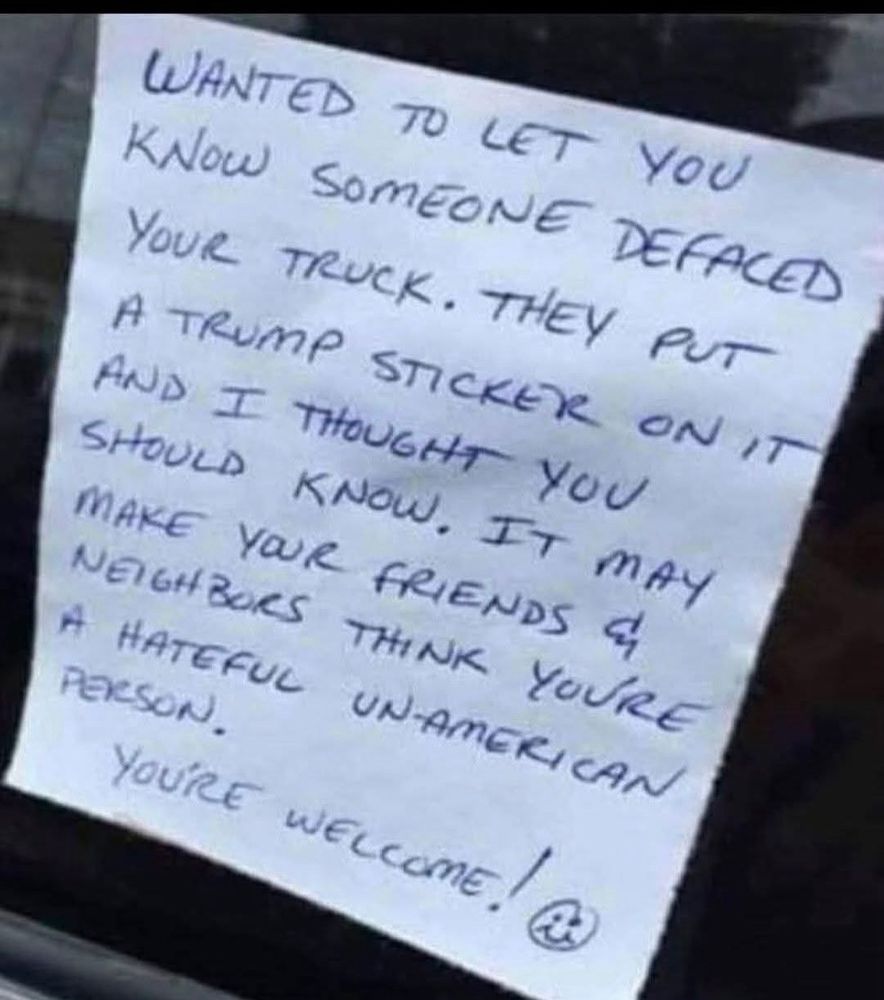 WANTED TO LET YOU
KNOW SOMEONE DEFACED
YOUR TRUCK. THEY PUT
A TRUMP STICKER ON IT
AND I THOUGHT YOU
SHOULD KNOW. IT MAY
MAKE YOUR FRIENDS &
NEIGHBORS THINK YOU'RE
A HATEFUL UN-AMERICAN
PERSON.
YOU'RE WELCOME!